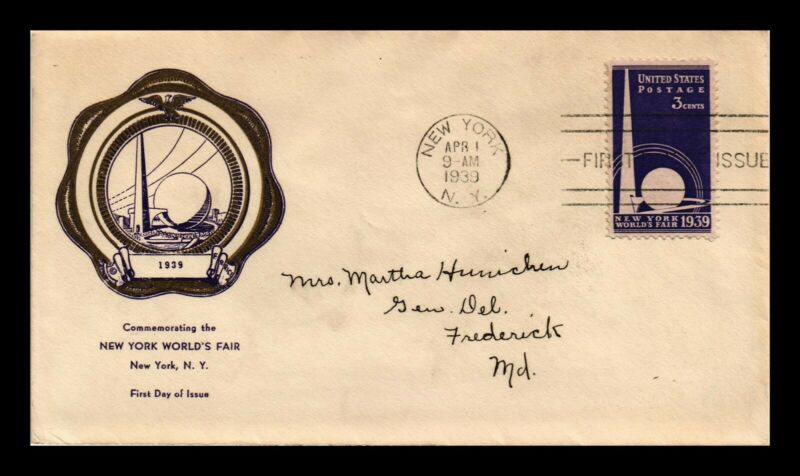 1939
Commemorating the
NEW YORK WORLD'S FAIR
New York, N. Y.
First Day of Issue
NEW YORK
APR 1
9-AM
1939
N. Y.
FIRST
ISSUE
UNITED STATES
POSTAGE
3 CENTS
NEW YORK
WORLD'S FAIR 1939
Mrs. Martha Hunichen
Gen. Del.
Frederick
Md.